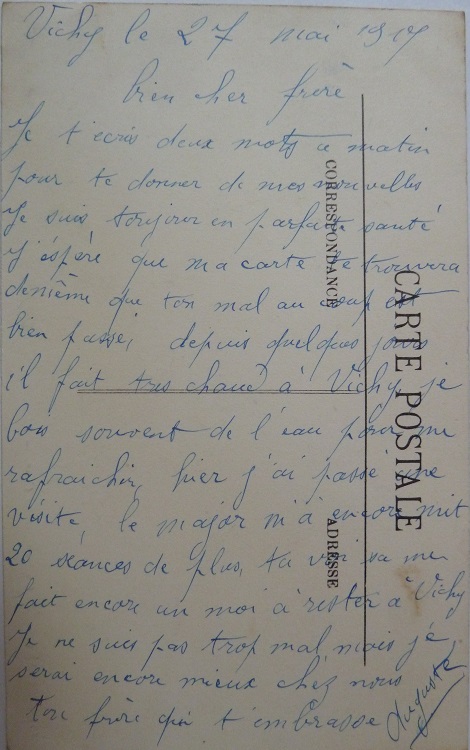 Vichy le 27 mai 1917
bien cher frère
Je t'ecris deux mots ce matin
pour te donner de mes nouvelles
Je suis toujour en parfaite santé
J'éspére que ma carte te trouvera
denième que ton mal au coup est
bien passé, depuis quelques jours
il fait tres chaud à Vichy, je
bois souvent de l'eau pour me
rafraichir, hier j'ai passé une
visite, le major m'a encore mit
20 séances de plus, tu voi sa me
fait encore un moi a rester a Vichy
Je ne suis pas trop mal mais jé
serai encore mieux chez nous
ton frère qui t'embrasse Auguste
CARTE POSTALE
CORRESPONDANCE
ADRESSE